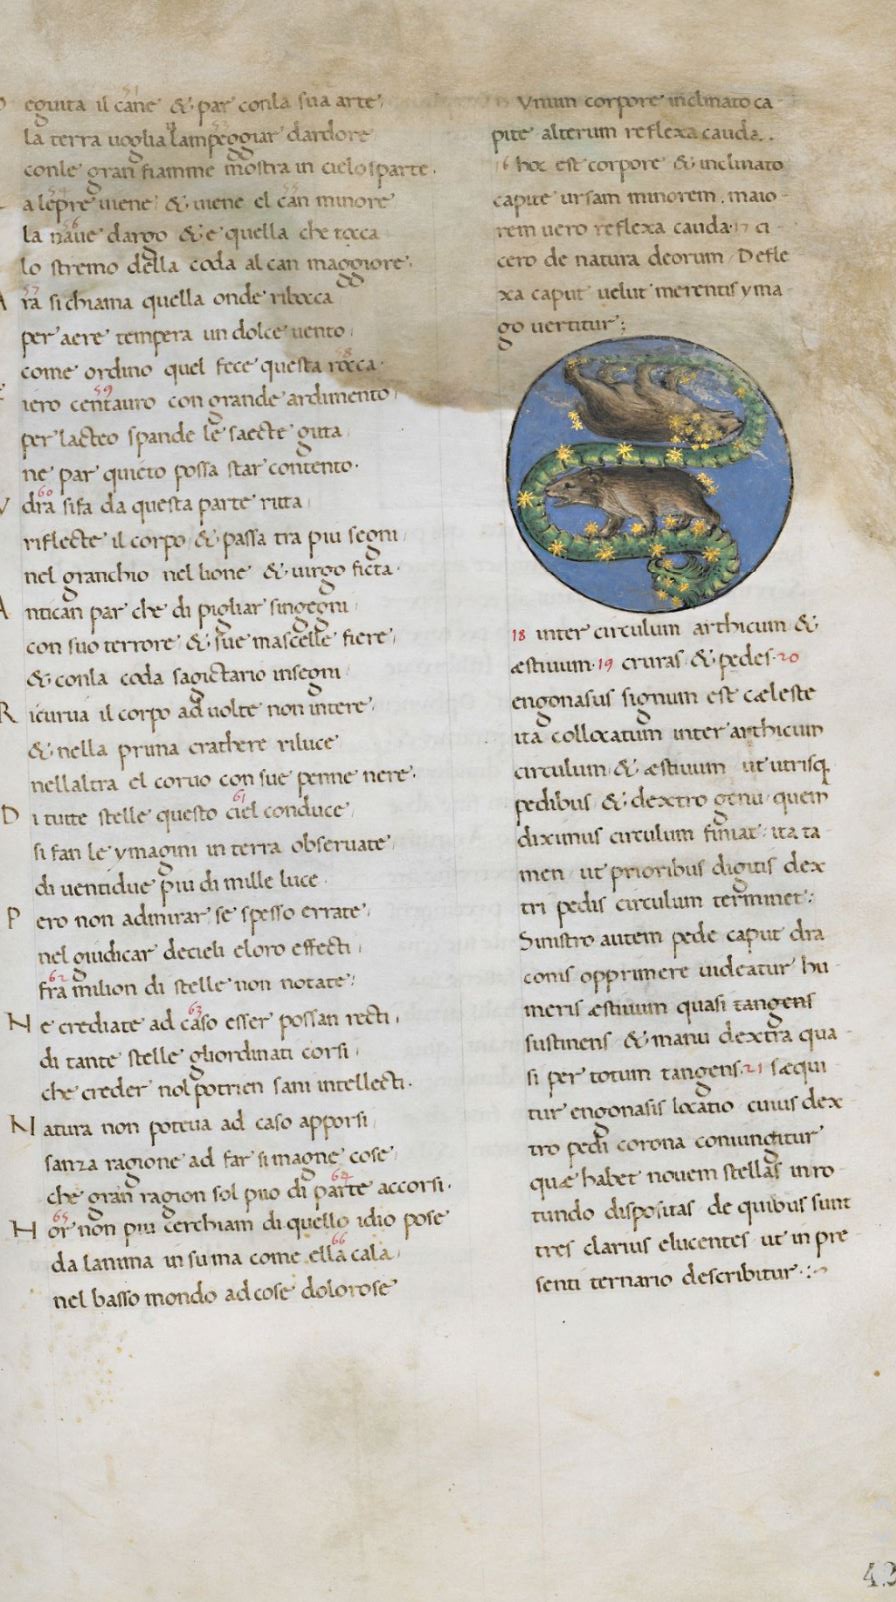 eguita il cane & par conla sua arte
la terra uoglia lampeggiar dardore
conle gran fiamme mostra in cielo sparte.
a lepre uiene & uiene el can minore
la naue dargo & e quella che tocca
lo stremo della coda al can maggiore.
A ra si chiama quella onde ribocca
per aere tempera un dolce uento
come ordino quel fece questa rocca.
iero centauro con grande ardimento
per lacteo spande le saecte guta
ne par quieto possa star contento.
V dra si fa da questa parte riuta
riflecte il corpo & passa tra piu segni
nel granchio nel lione & uirgo ficta.
A ntican par che di pigliar singegni
con suo terrore & sue mascelle fiere
& conla coda sagictario insegni
R icurua il corpo ad uolte non intere
& nella prima crathere riluce
nellaltra el coruo con sue penne nere.
D i tutte stelle questo ciel conduce
si fan le ymagini in terra obseruate
di uentidue piu di mille luce.
P ero non admirar se spesso errate
nel giudicar decieli eloro effecti
fra milion di stelle non notate:
N e crediate ad caso esser possan recti
di tante stelle gliordinati corsi
che creder nol potrien sani intellecti.
N atura non poteua ad caso apporsi
sanza ragione ad far si magne cose
che gran ragion sol puo di parte accorsi.
H or non piu cerchiam di quello idio pose
da lanima in su ma come ella cala
nel basso mondo ad cose dolorose
Vnum corpore inclinato ca
pite alterum reflexa cauda.
16 hoc est corpore & inclinato
capite ursam minorem. maio
rem uero reflexa cauda. 17 ci
cero de natura deorum. Defle
xa caput uelut merentis yma
go uertitur:
18 inter circulum arthicum &
æstiuum. 19 cruras & pedes. 20
engonasus signum est cæleste
ita collocatum inter arthicum
circulum & æstiuum ut utrisq
pedibus & dextro genu quem
diximus circulum finiat: ita ta
men ut prioribus digitis dex
tri pedis circulum terminet:
Sinistro autem pede caput dra
conis opprimere uideatur hu
meris æstiuum quasi tangens
sustinens & manu dextra qua
si per totum tangens. 21 sæqui
tur engonasis locatio cuius dex
tro pedi corona coniungitur
quæ habet nouem stellas in ro
tundo dispositas de quibus sunt
tres clarius elucentes ut in pre
senti ternario describitur: